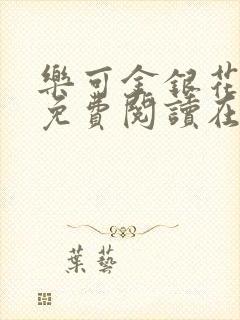 樂可金銀花
免費閱讀在
葉藝